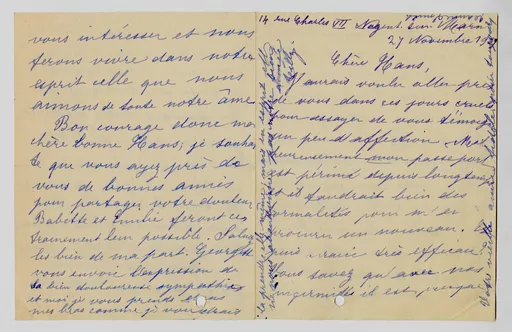 14 rue Charles VII Nogent sur Marne
27 Novembre
Chère Hans,
J'aurais voulu aller près
de vous dans ces jours cruels
pour essayer de vous témoigner
un peu d'affection. Mal-
heureusement mon passeport
est périmé depuis longtemps
et il faudrait bien des
formalités pour m'en
procurer un nouveau.
puis serait-ce très efficace
Vous savez qu'avec nos
infirmités il est
vous intéresser et nous
ferons vivre dans notre
esprit celle que nous
aimons de toute notre âme
Bon courage donc ma
chère bonne Hans; je souhai
te que vous ayez près de
vous de bonnes amies
pour partager votre douleur
Babette et Emilie feront ces
leur possible. Saluez
les bien de ma part. Georgette
vous envoie l'expression de
sa bien douloureuse sympathie
et moi je vous prends dans
mes bras comme je voudrais